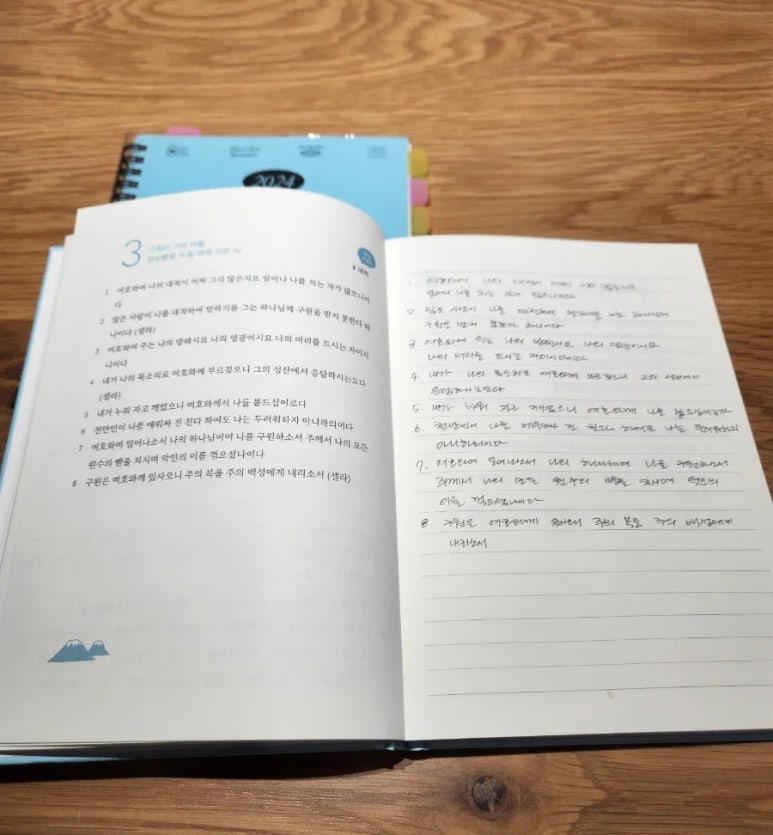 2024
3
압살롬을 피할 때에 지은 시
1 여호와여 나의 대적이 어찌 그리 많은지요 일어나 나를 치는 자가 많으니이
다
2 많은 사람이 나를 대적하여 말하기를 그는 하나님께 구원을 받지 못한다 하
나이다 (셀라)
3 여호와여 주는 나의 방패시요 나의 영광이시요 나의 머리를 드시는 자이시
니이다
4 내가 나의 목소리로 여호와께 부르짖으니 그의 성산에서 응답하시는도다
(셀라)
5 내가 누워 자고 깨었으니 여호와께서 나를 붙드심이로다
6 천만인이 나를 에워싸 진 친다 하여도 나는 두려워하지 아니하리이다
7 여호와여 일어나소서 나의 하나님이여 나를 구원하소서 주께서 나의 모든
원수의 뺨을 치시며 악인의 이를 꺾으셨나이다
8 구원은 여호와께 있사오니 주의 복을 주의 백성에게 내리소서 (셀라)
1. 여호와여 나의 대적이 어찌 그리 많은지요
일어나 나를 치는 자가 많으니이다
2. 많은 사람이 나를 대적하여 말하기를 그는 하나님께
구원을 받지 못한다 하나이다
3 여호와여 주는 나의 방패시요 나의 영광이시요
나의 머리를 드시는 자이시니이다
4 내가 나의 목소리로 여호와께 부르짖으니 그의 성산에서
응답하시는도다
5. 내가 누워 자고 깨었으니 여호와께서 나를 붙드심이로다
6. 천만인이 나를 에워싸 진 친다 하여도 나는 두려워하지
아니하리이다
7. 여호와여 일어나소서 나의 하나님이여 나를 구원하소서
주께서 나의 모든 원수의 뺨을 치시며 악인의
이를 꺾으셨나이다
8. 구원은 여호와께 있사오니 주의 복을 주의 백성에게
내리소서